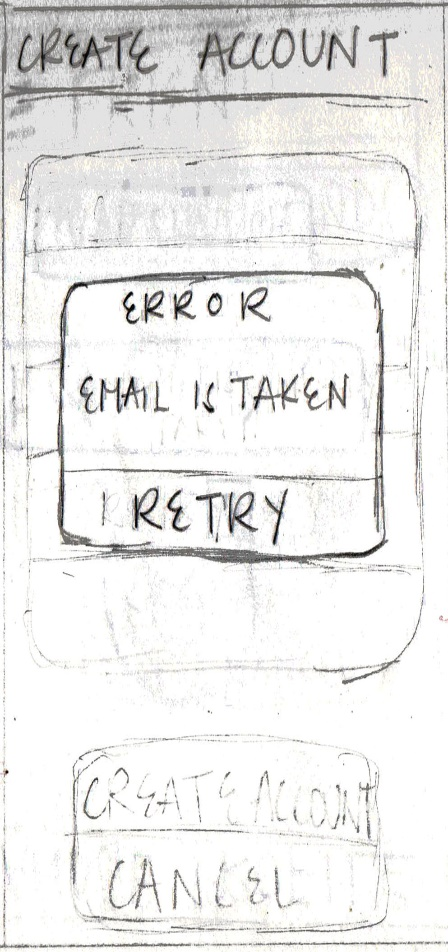 CREATE ACCOUNT
ERROR
EMAIL IS TAKEN
RETRY
CREATE ACCOUNT
CANCEL